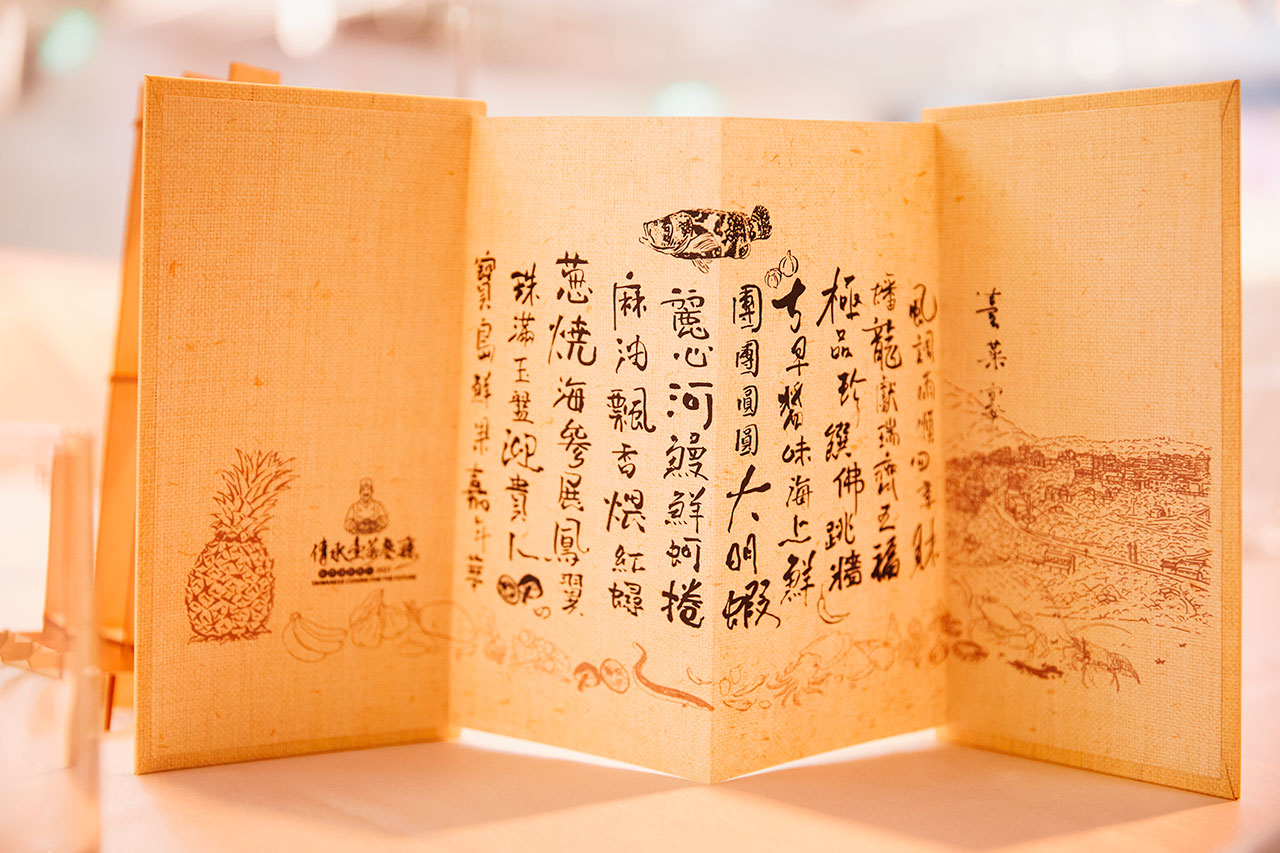 臺菜宴
風調雨順四季財
蟠龍獻瑞齊五福
極品珍饌佛跳牆
古早醬味海上鮮
團團圓圓大明蝦
麗心河鰻鮮蚵捲
麻油飄香煨紅蟳
蔥燒海參展鳳翼
珠滿玉盤迎貴人
寶島鮮果嘉年華
TAIWANESE CUISINE FOR THE FUTURE